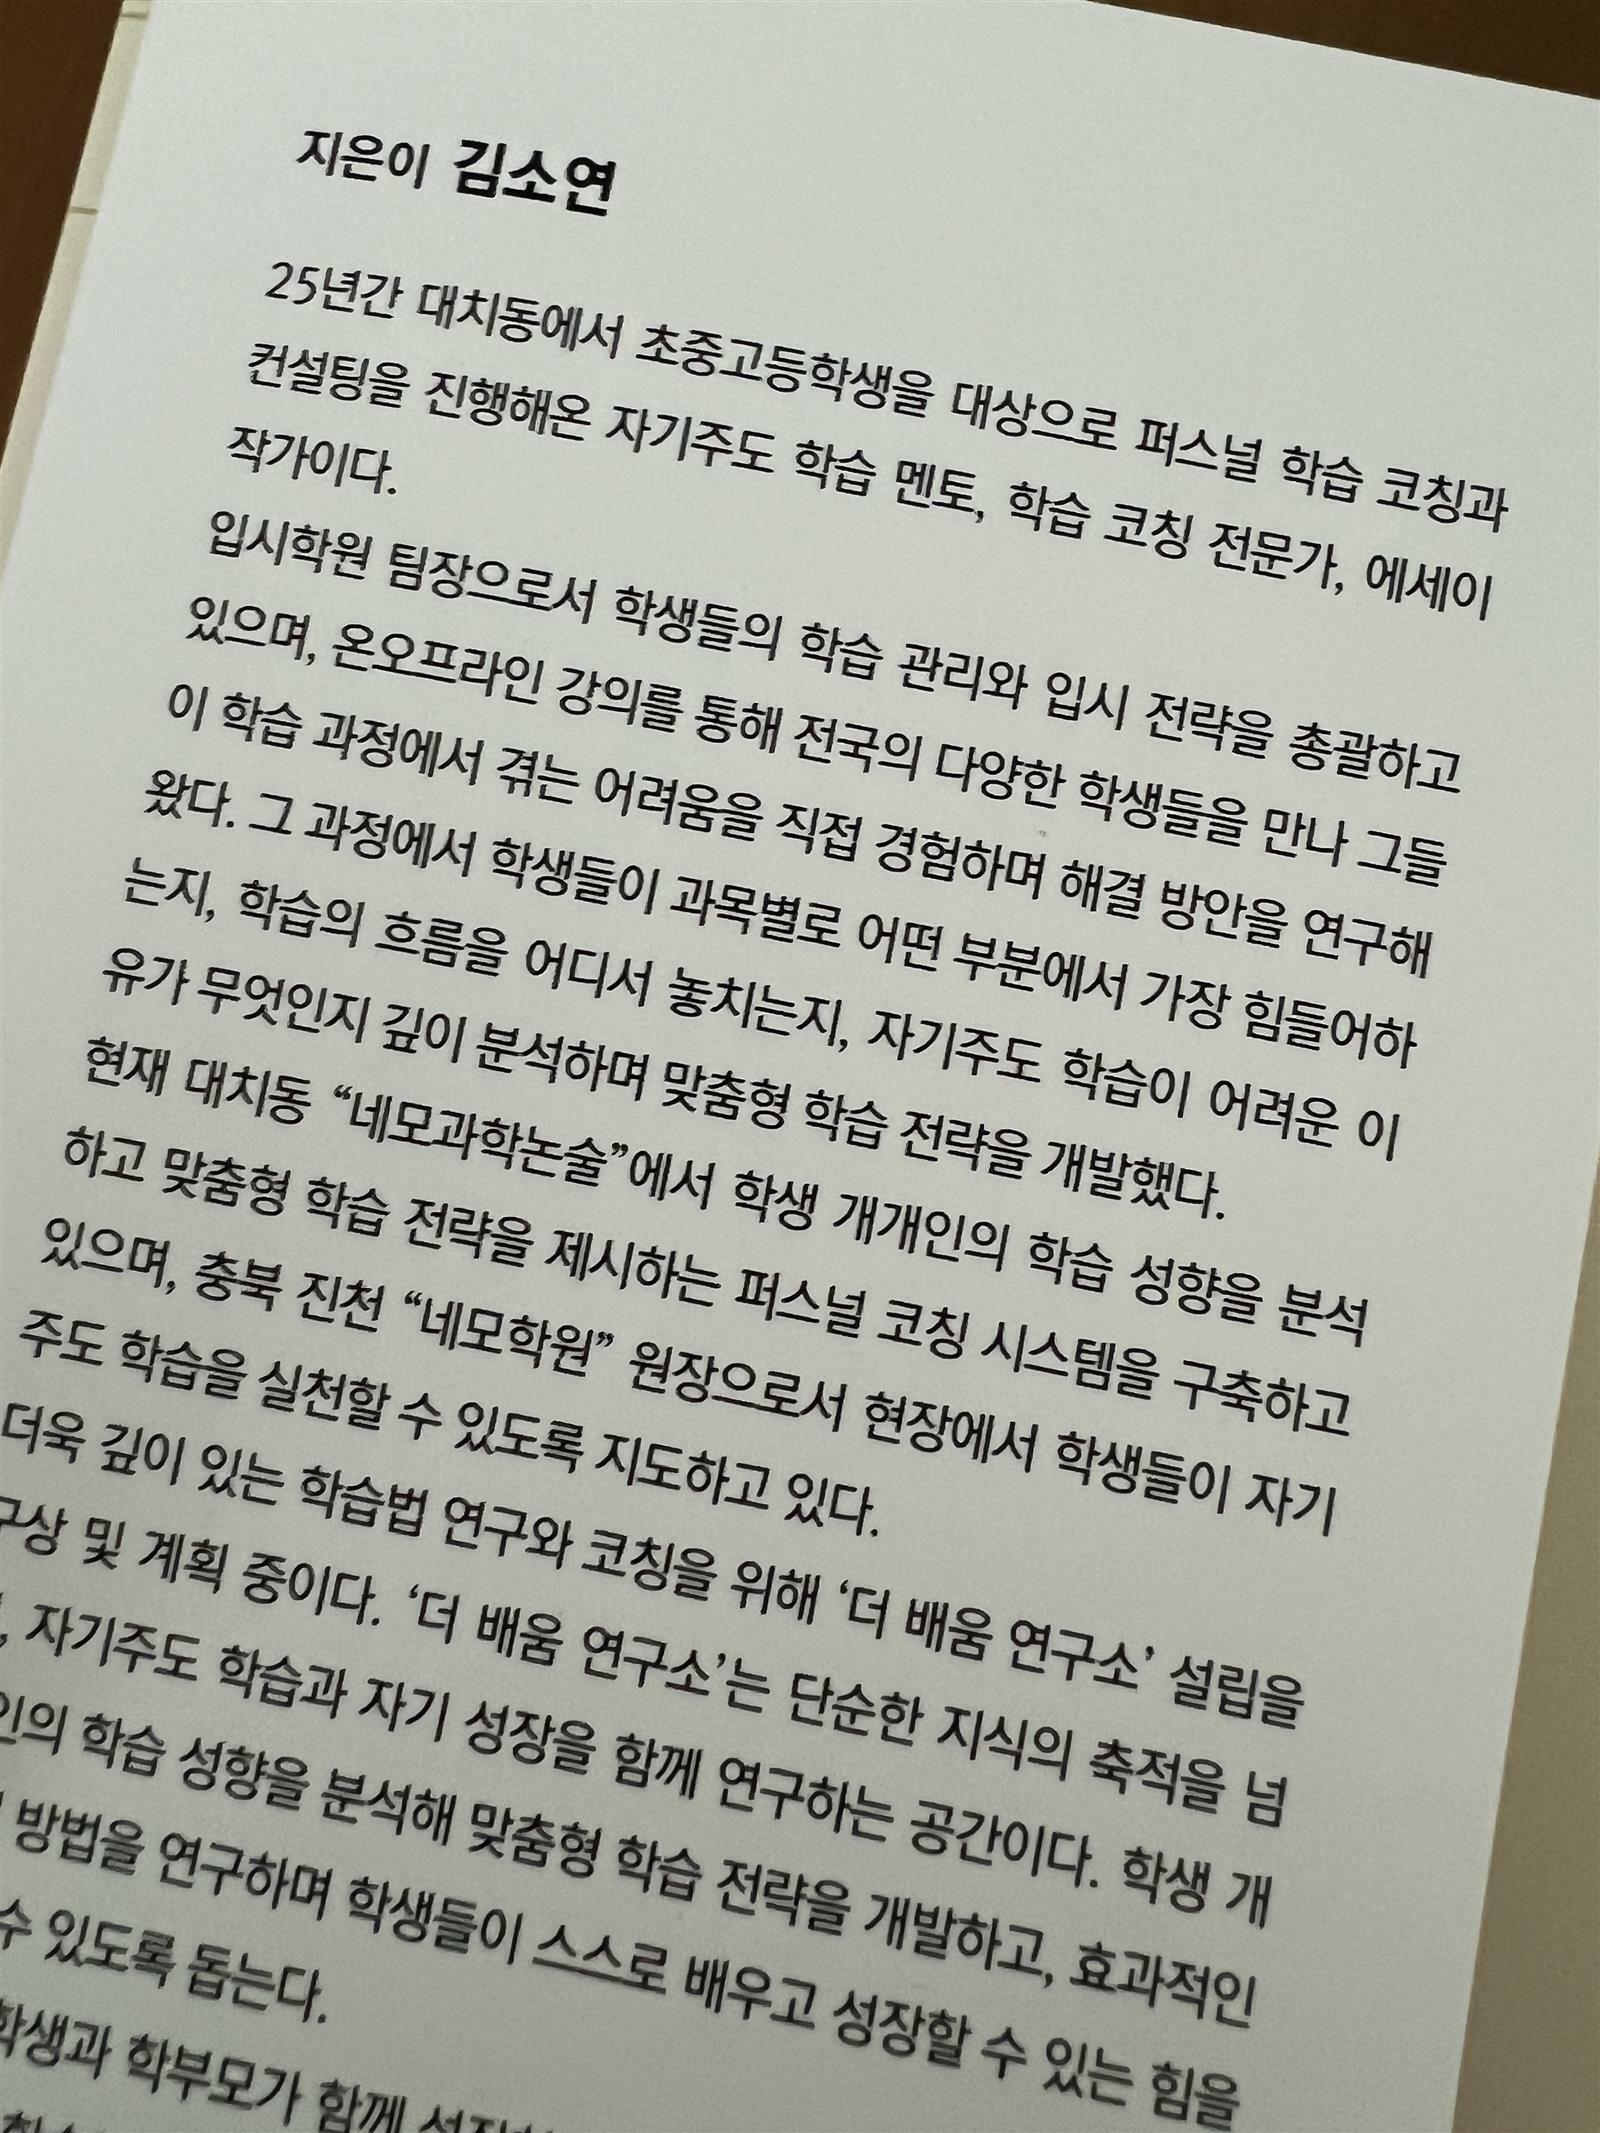 지은이 김소연
25년간 대치동에서 초중고등학생을 대상으로 퍼스널 학습 코칭과
컨설팅을 진행해온 자기주도 학습 멘토, 학습 코칭 전문가, 에세이
작가이다.
입시학원 팀장으로서 학생들의 학습 관리와 입시 전략을 총괄하고
있으며, 온오프라인 강의를 통해 전국의 다양한 학생들을 만나 그들
이 학습 과정에서 겪는 어려움을 직접 경험하며 해결 방안을 연구해
왔다. 그 과정에서 학생들이 과목별로 어떤 부분에서 가장 힘들어하
는지, 학습의 흐름을 어디서 놓치는지, 자기주도 학습이 어려운 이
유가 무엇인지 깊이 분석하며 맞춤형 학습 전략을 개발했다.
현재 대치동 “네모과학논술”에서 학생 개개인의 학습 성향을 분석
하고 맞춤형 학습 전략을 제시하는 퍼스널 코칭 시스템을 구축하고
있으며, 충북 진천 “네모학원” 원장으로서 현장에서 학생들이 자기
주도 학습을 실천할 수 있도록 지도하고 있다.
더욱 깊이 있는 학습법 연구와 코칭을 위해 ‘더 배움 연구소’ 설립을
구상 및 계획 중이다. ‘더 배움 연구소’는 단순한 지식의 축적을 넘
, 자기주도 학습과 자기 성장을 함께 연구하는 공간이다. 학생 개
인의 학습 성향을 분석해 맞춤형 학습 전략을 개발하고, 효과적인
방법을 연구하며 학생들이 스스로 배우고 성장할 수 있는 힘을
수 있도록 돕는다.
학생과 학부모가 함께